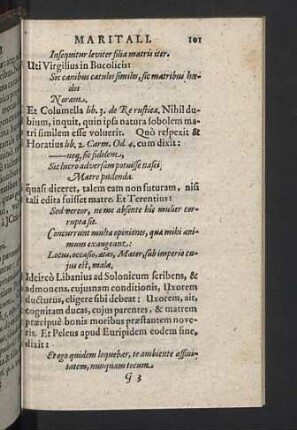 MARITALI. 101
Insequitur leviter filia matris iter.
Uti Virgilius in Bucolicis:
Sic canibus catulos similes, sic matribus hœ-
dos
Noram.
Et Columella lib. 3. de Re rustica, Nihil du-
bium, inquit, quin ipsa natura sobolem ma-
tri similem esse voluerit. Quò respexit &
Horatius lib. 2. Carm. Od. 4. cum dixit:
—neq, sic fidelem,
Sic lucro adversam potuisse nasci
Matre pudenda.
quasi diceret, talem eam non futuram, nisi
tali edita fuisset matre. Et Terentius:
Sed vereor, ne me absente hic mulier cor-
rupta sit.
Concurrunt multa opiniones, qua mihi ani-
mum exaugeant:
Locus, occasio, ætas, Mater, sub imperio cu-
jus est, mala,
Idcircò Libanius ad Solonicum scribens, &
admonens, cujusnam conditionis, Uxorem
ducturus, eligere sibi debeat: Uxorem, ait,
cognitam ducas, cujus parentes, & matrem
præcipuè bonis moribus præstantem nove-
ris. Et Peleus apud Euripidem eodem sine,
dixit:
Et ego quidem loquebar, te ambiente affini-
tatem, nunquam tecum
G 3